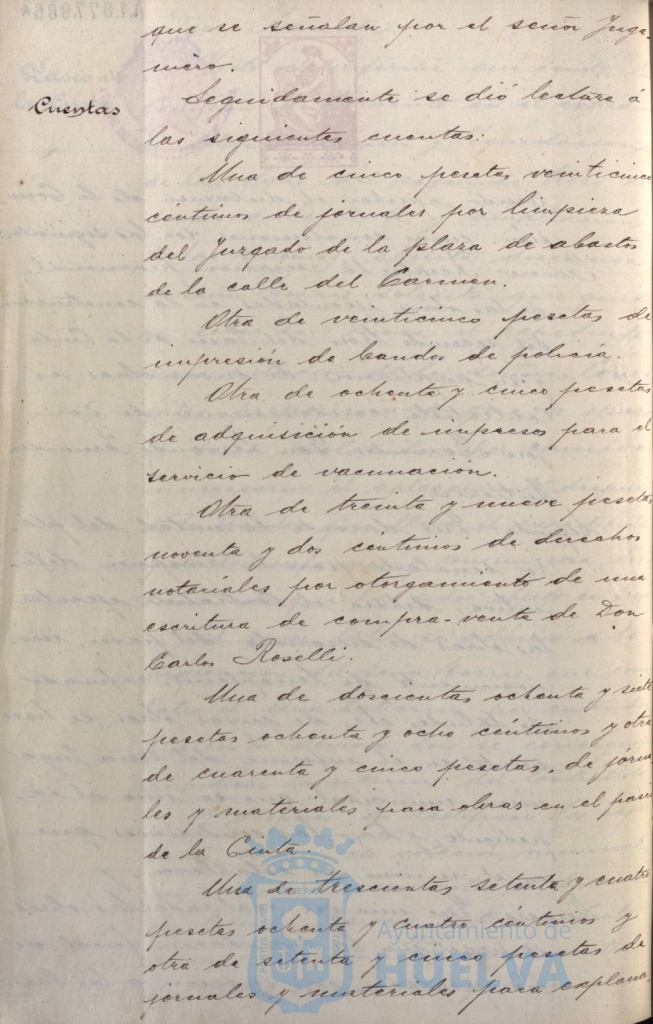 que se señalan por el señor Inge-
niero.
Cuentas
Seguidamente se dió lectura á
las siguientes cuentas:
Una de cinco pesetas veinticinco
céntimos de jornales por limpieza
del Juzgado de la plaza de abastos
de la calle del Carmen.
Otra de veinticinco pesetas de
impresión de bandos de policía.
Otra de ochenta y cinco pesetas
de adquisición de impresos para el
servicio de vacunación.
Otra de treinta y nueve pesetas
noventa y dos céntimos de derechos
notariales por otorgamiento de una
escritura de compra-venta de Don
Carlos Roselli.
Una de doscientas ochenta y siete
pesetas ochenta y ocho céntimos y otra
de cuarenta y cinco pesetas, de jorna
les y materiales para obras en el paseo
de la Cinta.
Una de trescientas setenta y cuatro
pesetas ochenta y cuatro céntimos y
otra de setenta y cinco pesetas de
jornales y materiales para explana
Ayuntamiento de
HUELVA